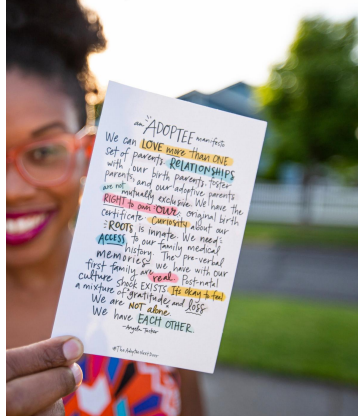 an ADOPTEE manifesto
We can LOVE more than ONE
set of parents. RELATIONSHIPS
with our birth parents, foster
parents, and our adoptive parents
are not mutually exclusive. We have the
RIGHT to own OUR original birth
certificate. Curiosity about our
ROOTS is innate. We need
ACCESS to our family medical
history. The pre-verbal
memories we have with our
first family are real. Post-natal
culture shock EXISTS. It's okay to feel
a mixture of gratitude and loss.
We are NOT alone.
We have EACH OTHER.
-Angela Tucker